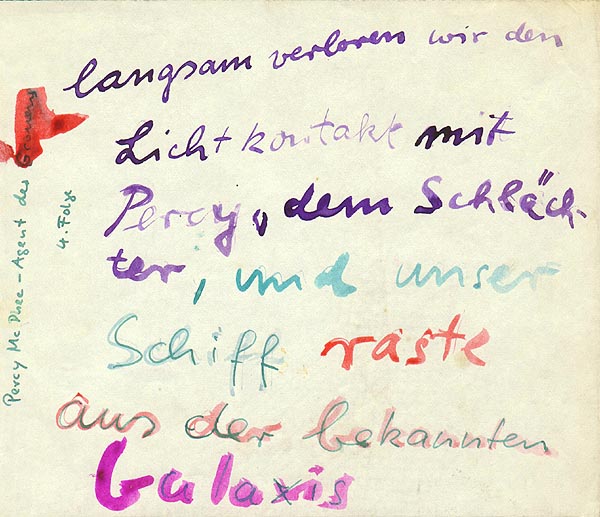 langsam verloren wir den
Lichtkontakt mit
Percy, dem Schläch-
ter, und unser
Schiff raste
aus der bekannten
Galaxis
Percy Mc Phee – Agent des Grauens
4. Folge